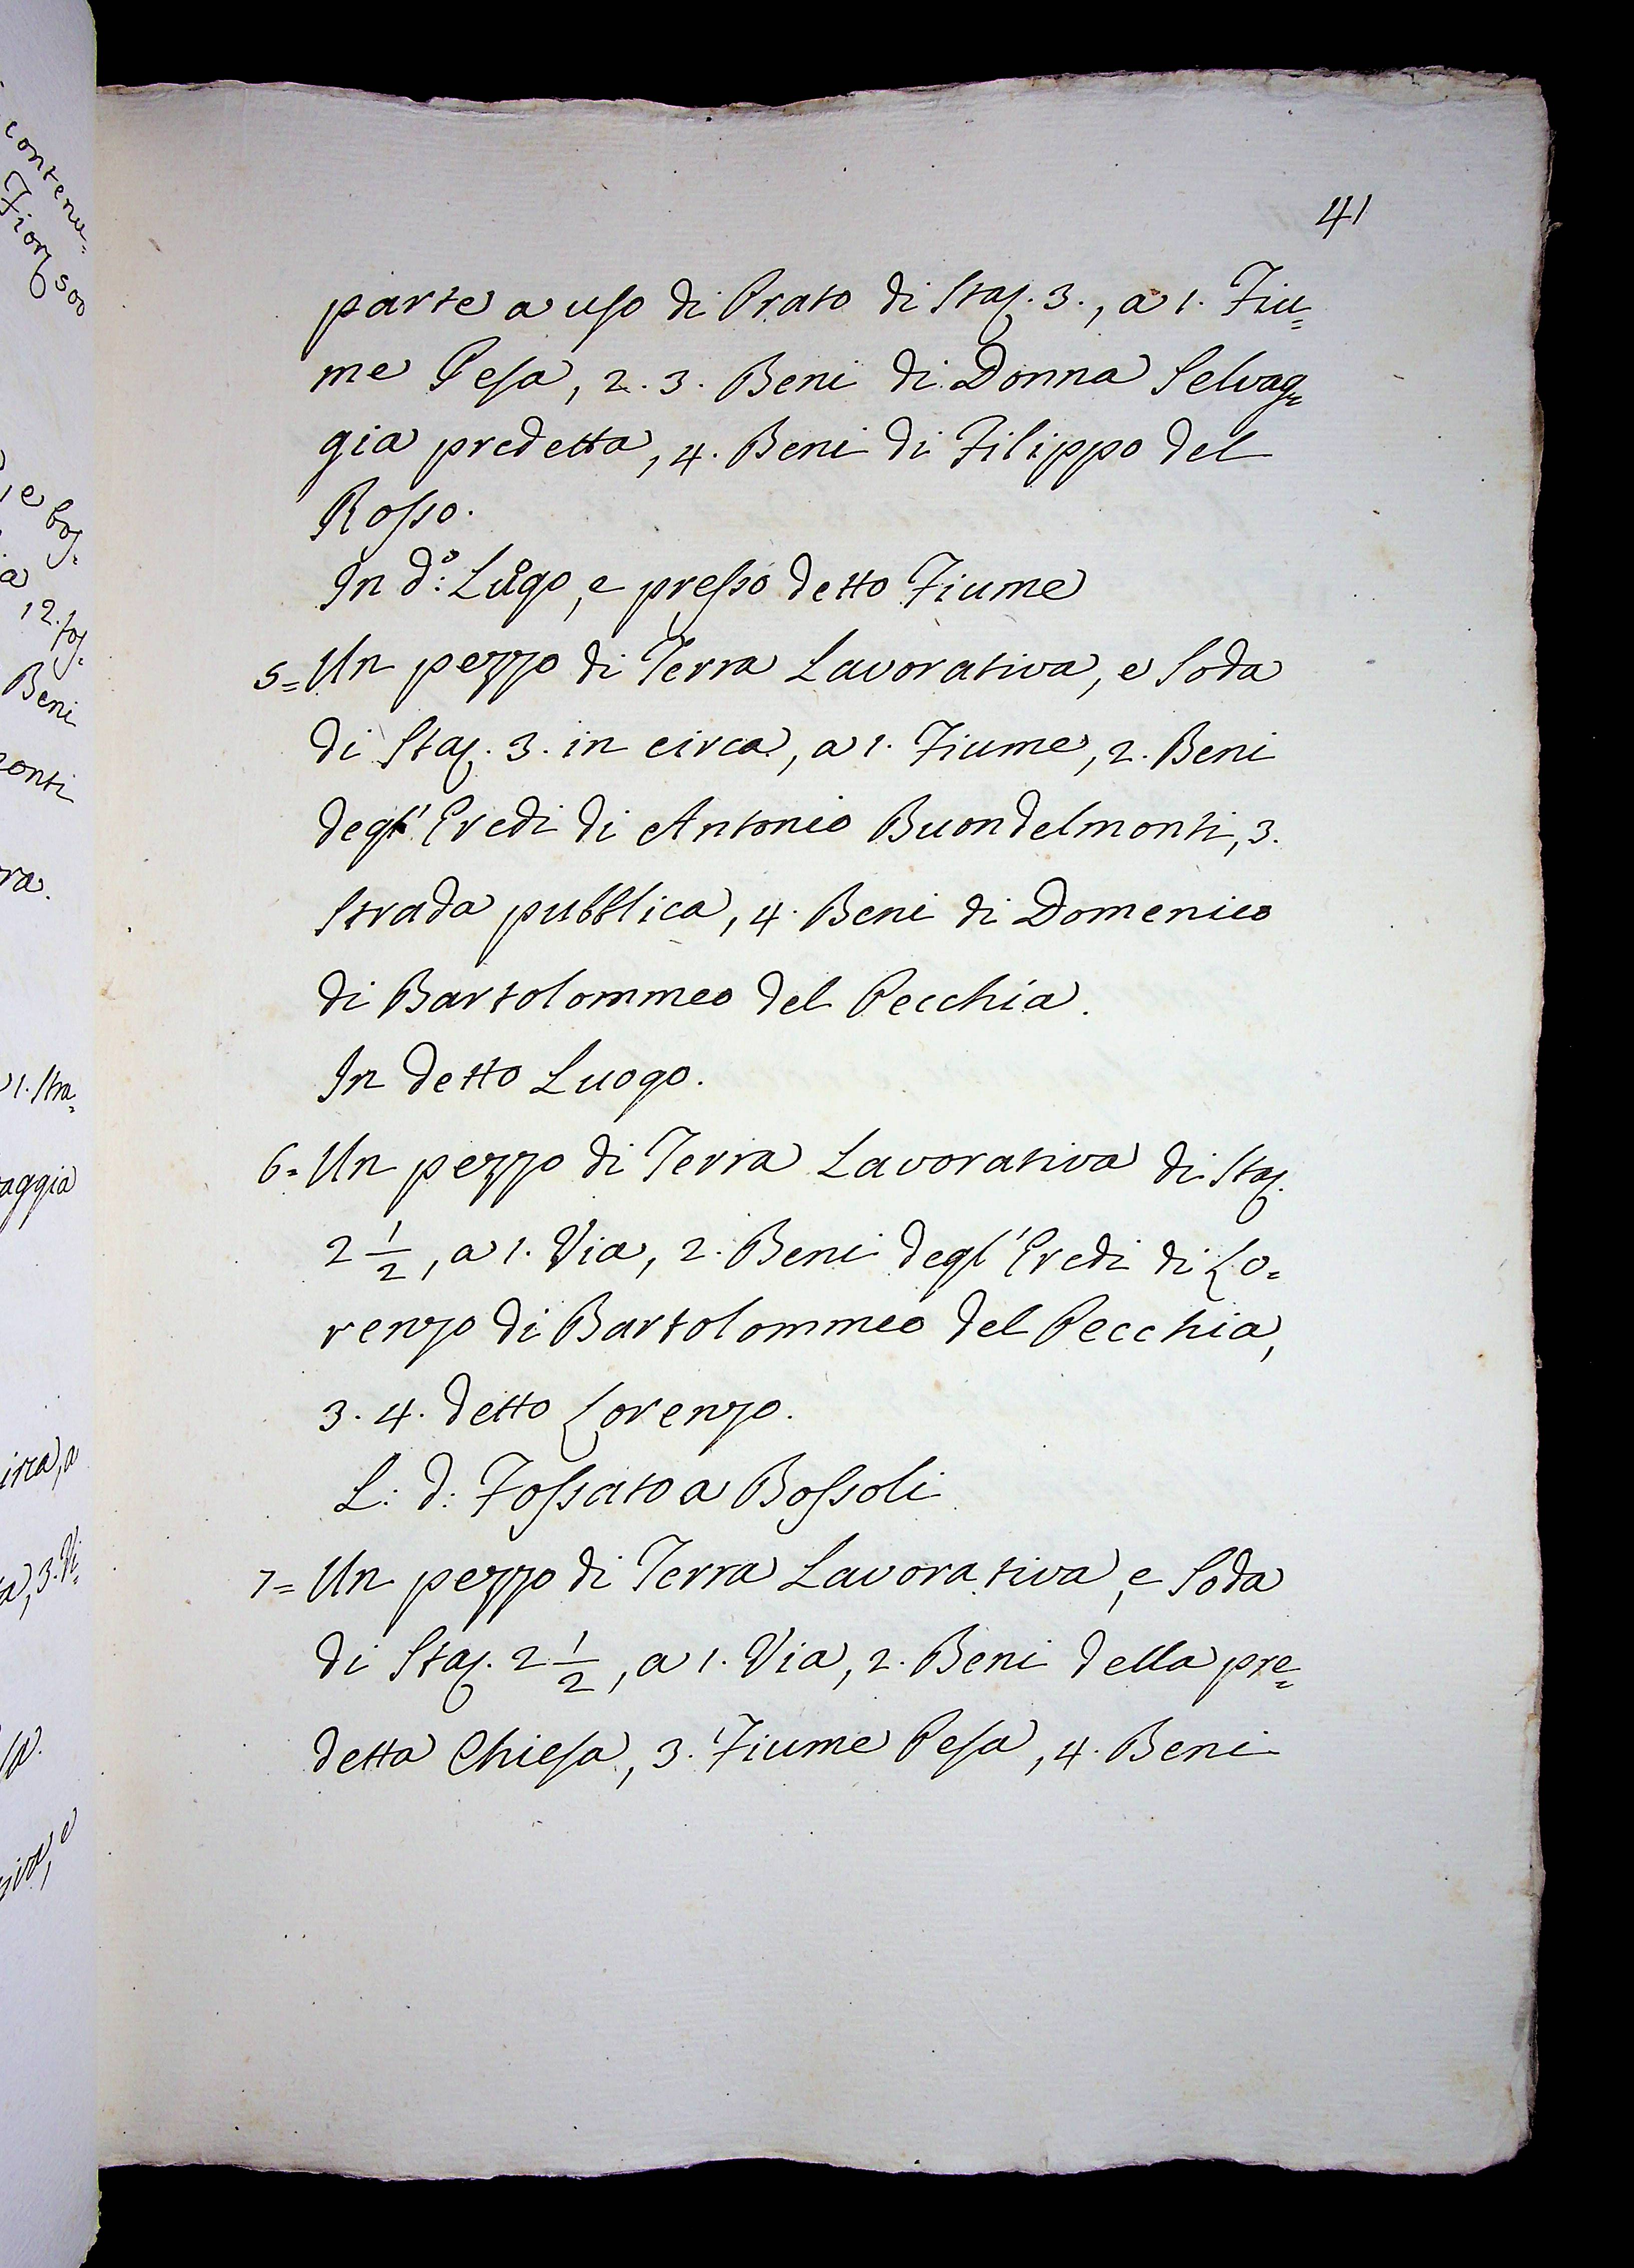 contenu=
Fior 500
e bos=
a
12.
Beni
onti
ra.
1. Stra=
aggia
irca, a
a, 3. Vi=
sa.
41
parte a uso di Prato di Staj. 3., a 1. Fiu=
me Pesa, 2. 3. Beni di Donna Selvag=
gia predetta, 4. Beni di Filippo del
Rosso.
In d.º: Luogo, e presso detto Fiume
5= Un pezzo di Terra Lavorativa, e Soda
di Staj. 3. in circa, a 1. Fiume, 2. Beni
degl' Eredi di Antonio Buondelmonti, 3.
Strada pubblica, 4. Beni di Domenico
di Bartolommeo del Pecchia.
In detto Luogo.
6= Un pezzo di Terra Lavorativa di Staj.
2 1/2, a 1. Via, 2. Beni degl' Eredi di Lo=
renzo di Bartolommeo del Pecchia,
3. 4. detto Lorenzo.
L: d: Fossato a Bossoli
7= Un pezzo di Terra Lavorativa, e Soda
di Staj. 2 1/2, a 1. Via, 2. Beni della pre=
detta Chiesa, 3. Fiume Pesa, 4. Beni